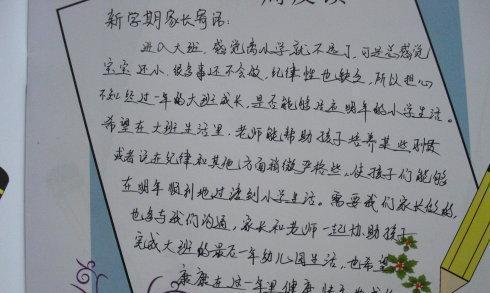 新学期家长寄语：
进入大班，感觉离小学就不远了，可是总感觉
宝宝还小，很多事还不会做，纪律性也缺乏，所以担心
不知经过一年的大班成长，是否能够适应明年的小学生活。
希望在大班生活里，老师能帮助孩子培养某些习惯
或者说在纪律和其他方面稍微严格些，使孩子们能够
在明年顺利地过渡到小学生活。需要我们家长做的，
也多与我们沟通，家长和老师一起协助孩子
完成大班的最后一年幼儿园生活，也希望
康康在这一年里健康